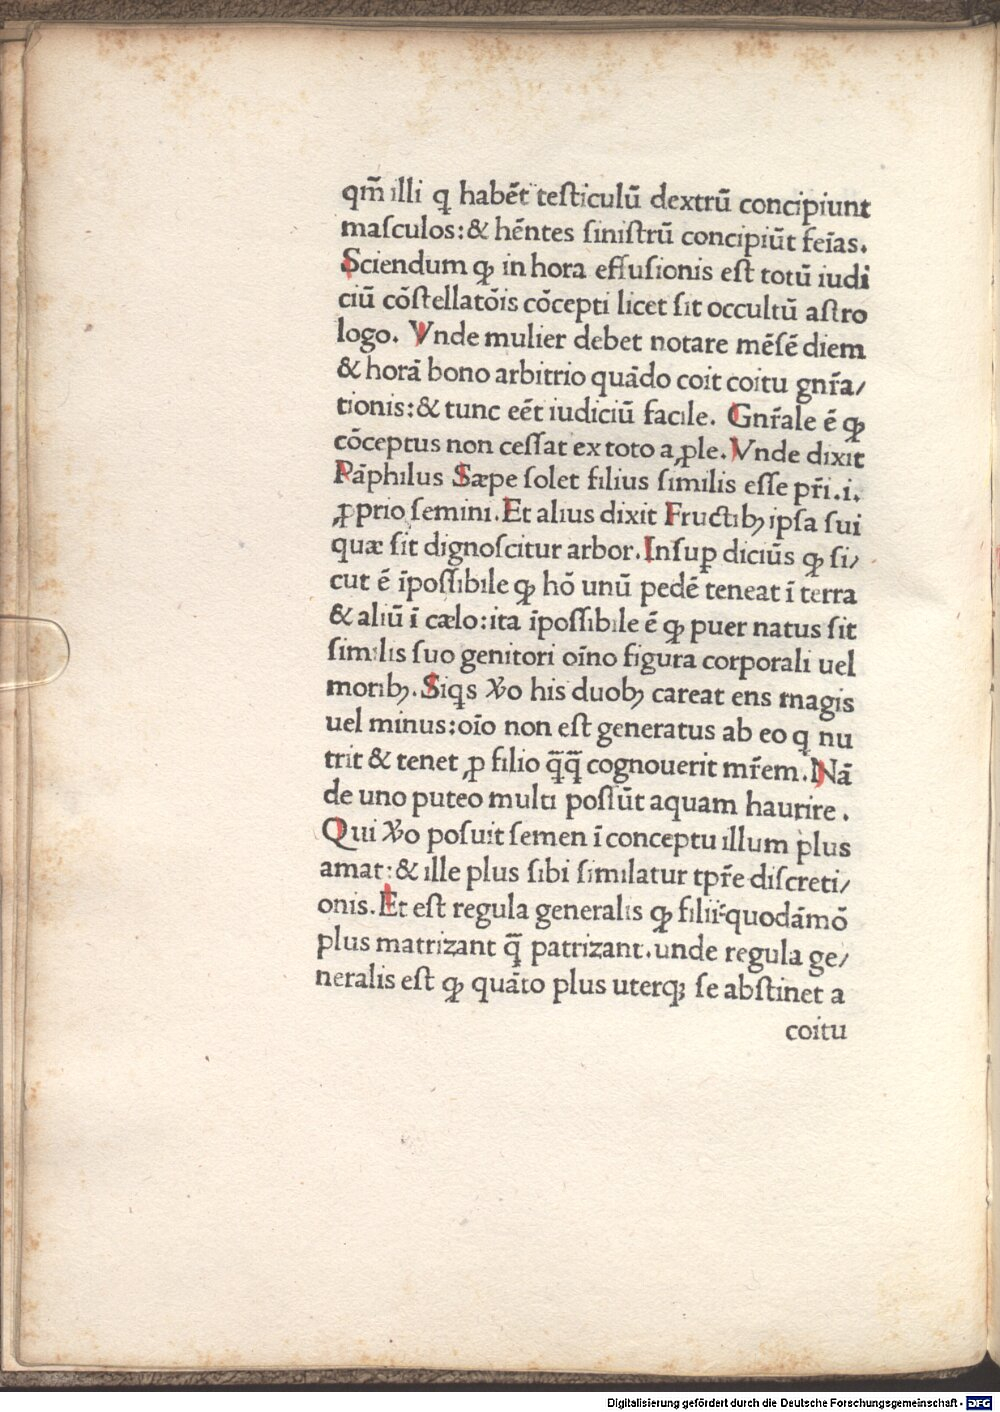 qm̄ illi q̣ habēt testiculū dextrū concipiunt
maſculos:& hēntes ſiniſtrū concipiūt feīas.
Sciendum ꝙ in hora effuſionis eſt totū iudi
ciū cōſtellatōis cōcepti licet ſit occultū aſtro
logo. Vnde mulier debet notare mēſē diem
& horā bono arbitrio quādo coit coitu gnr̄a/
tionis:& tunc eēt iudiciū facile. Gnr̄ale ē ꝙ
cōceptus non ceſſat ex toto a ꝓle. Vnde dixit
Pāphilus Sæpe ſolet filius ſimilis eſſe pr̄i.i.
ꝓprio ſemini. Et alius dixit Fructibꝫ ipſa ſui
quæ ſit dignoſcitur arbor. Inſuꝑ diciūs ꝙ ſi/
cut ē īpoſſibile ꝙ hō unū pedē teneat ī terra
& aliū ī cælo:ita īpoſſibile ē ꝙ puer natus ſit
ſimilis ſuo genitori oīno figura corporali uel
moribꝫ. Siqs v̾o his duobꝫ careat ens magis
uel minus:oīo non eſt generatus ab eo q̣ nu
trit & tenet ꝓ filio q̄q̄ cognouerit mr̄em. Nā
de uno puteo multi poſſūt aquam haurire.
Qui v̾o poſuit ſemen ī conceptu illum plus
amat:& ille plus ſibi ſimilatur tpr̄e diſcreti/
onis. Et eſt regula generalis ꝙ filii quodāmō
plus matrizant q̄ patrizant. unde regula ge/
neralis eſt ꝙ quāto plus uterqꝫ ſe abſtinet a
coitu
Digitalisierung gefördert durch die Deutsche Forschungsgemeinschaft - DFG